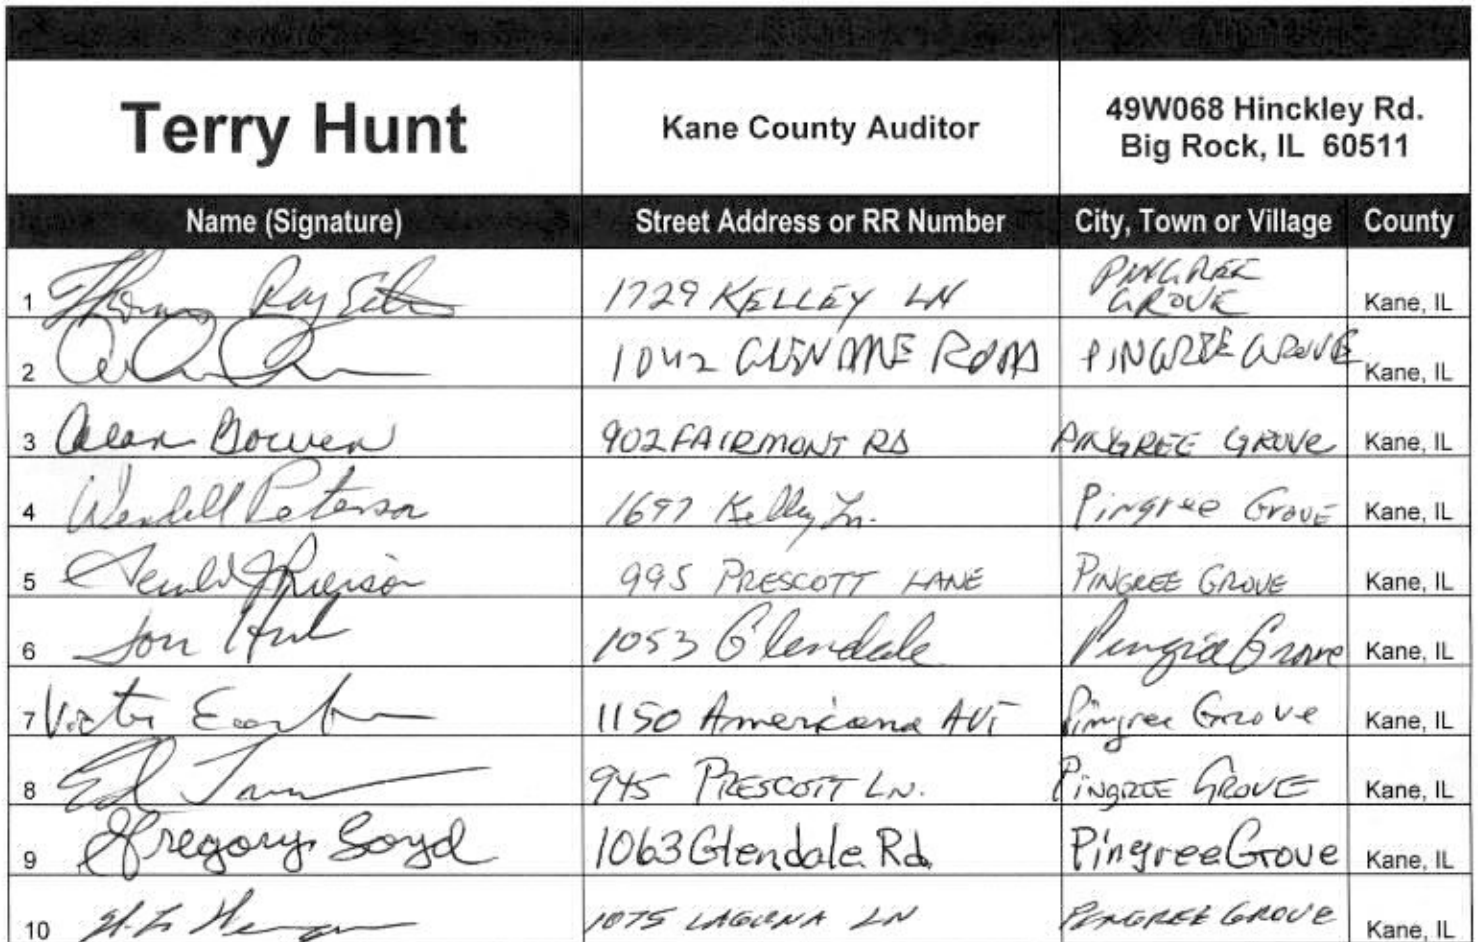 Terry Hunt
Kane County Auditor
49W068 Hinckley Rd.
Big Rock, IL 60511
Name (Signature) Street Address or RR Number City, Town or Village County
1 Thomas Ray 1729 KELLEY LN PINGREE GROVE Kane, IL
2 1042 ROAD PINGREE GROVE Kane, IL
3 Alan Bowen 902 FAIRMONT RD PINGREE GROVE Kane, IL
4 Wendell Peterson 1697 Kelly Ln. Pingree Grove Kane, IL
5 995 PRESCOTT LANE PINGREE GROVE Kane, IL
6 1053 Glendale Pingree Grove Kane, IL
7 1150 Americana AVE Pingree Grove Kane, IL
8 Ed 945 PRESCOTT LN. PINGREE GROVE Kane, IL
9 Gregory 1063 Glendale Rd. Pingree Grove Kane, IL
10 1075 LAGUNA LN PINGREE GROVE Kane, IL